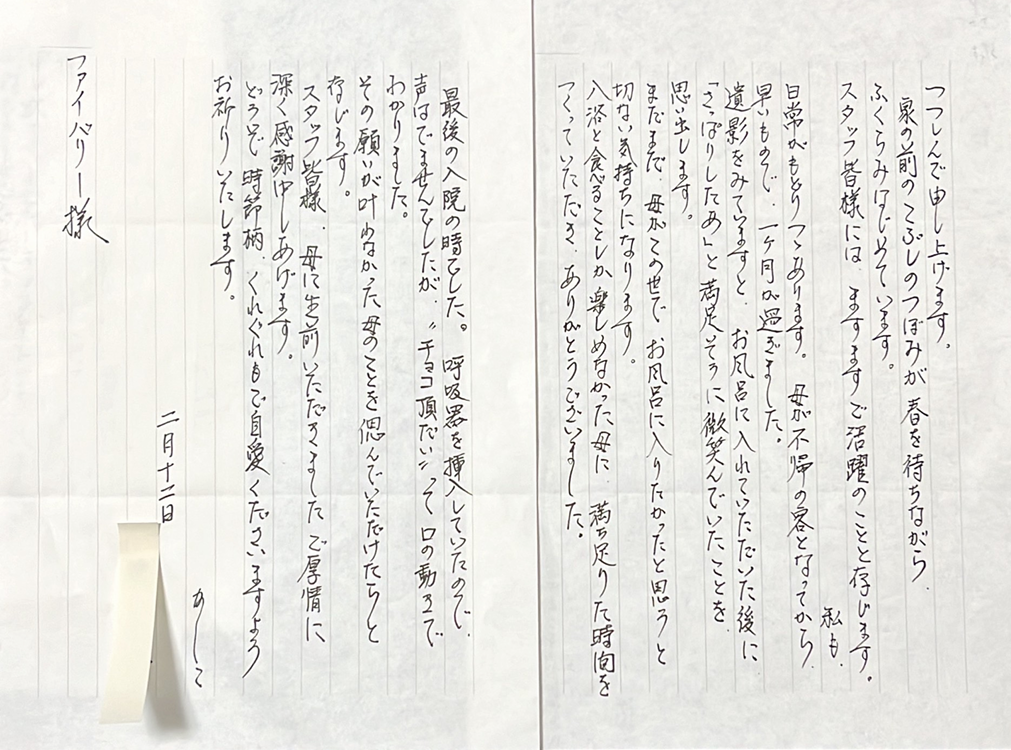 つつしんで申し上げます。
泉の前のこぶしのつぼみが春を待ちながら、
ふくらみはじめています。
スタッフ皆様には、ますますご活躍のことと存じます。
私も、
日常がもどりつゝあります。母が不帰の客となってから、
早いもので、一ヶ月が過ぎました。
遺影をみていますと、お風呂に入れていただいた後に
「さっぱりしたぁ」と満足そうに微笑んでいたことを
思い出します。
まだまだ、母がこの世で、お風呂に入りたかったと思うと
切ない気持ちになります。
入浴と食べることしか楽しめなかった母に、満ち足りた時間を
つくっていただき、ありがとうございました。
最後の入院の時でした。呼吸器を挿入していたので、
声はでませんでしたが、〝チョコ頂だい〟って口の動きで
わかりました。
その願いが叶わなかった母のことを偲んでいただけたらと
存じます。
スタッフ皆様、母に生前いただきましたご厚情に
深く感謝申しあげます。
どうぞ、時節柄、くれぐれもご自愛くださいますよう
お祈りいたします。
かしこ
二月十二日
ファイバリー様